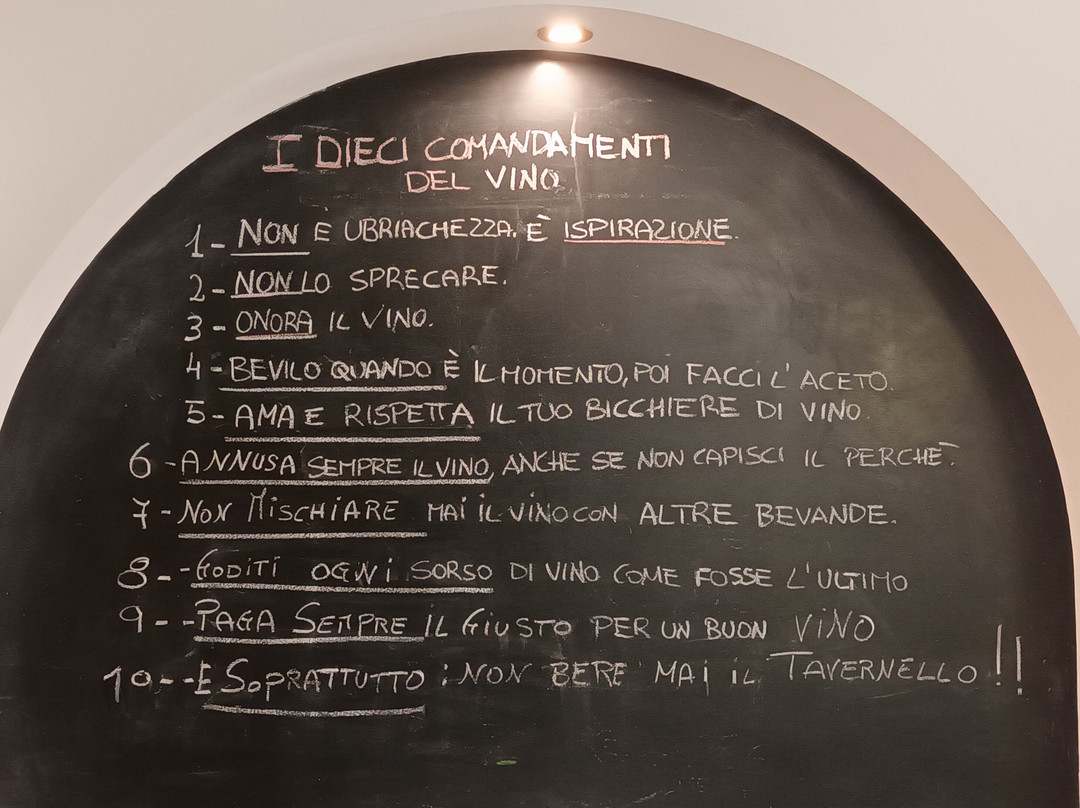 I DIECI COMANDAMENTI
DEL VINO
1- NON È UBRIACHEZZA. È ISPIRAZIONE.
2- NON LO SPRECARE.
3- ONORA IL VINO.
4- BEVILO QUANDO È IL MOMENTO, POI FACCI L'ACETO.
5- AMA E RISPETTA IL TUO BICCHIERE DI VINO.
6 - ANNUSA SEMPRE IL VINO, ANCHE SE NON CAPISCI IL PERCHÈ.
7 - NON MISCHIARE MAI IL VINO CON ALTRE BEVANDE.
8 - - GODITI OGNI SORSO DI VINO COME FOSSE L'ULTIMO
9 - - PAGA SEMPRE IL GIUSTO PER UN BUON VINO
10 - - E SOPRATTUTTO : NON BERE MAI IL TAVERNELLO !!